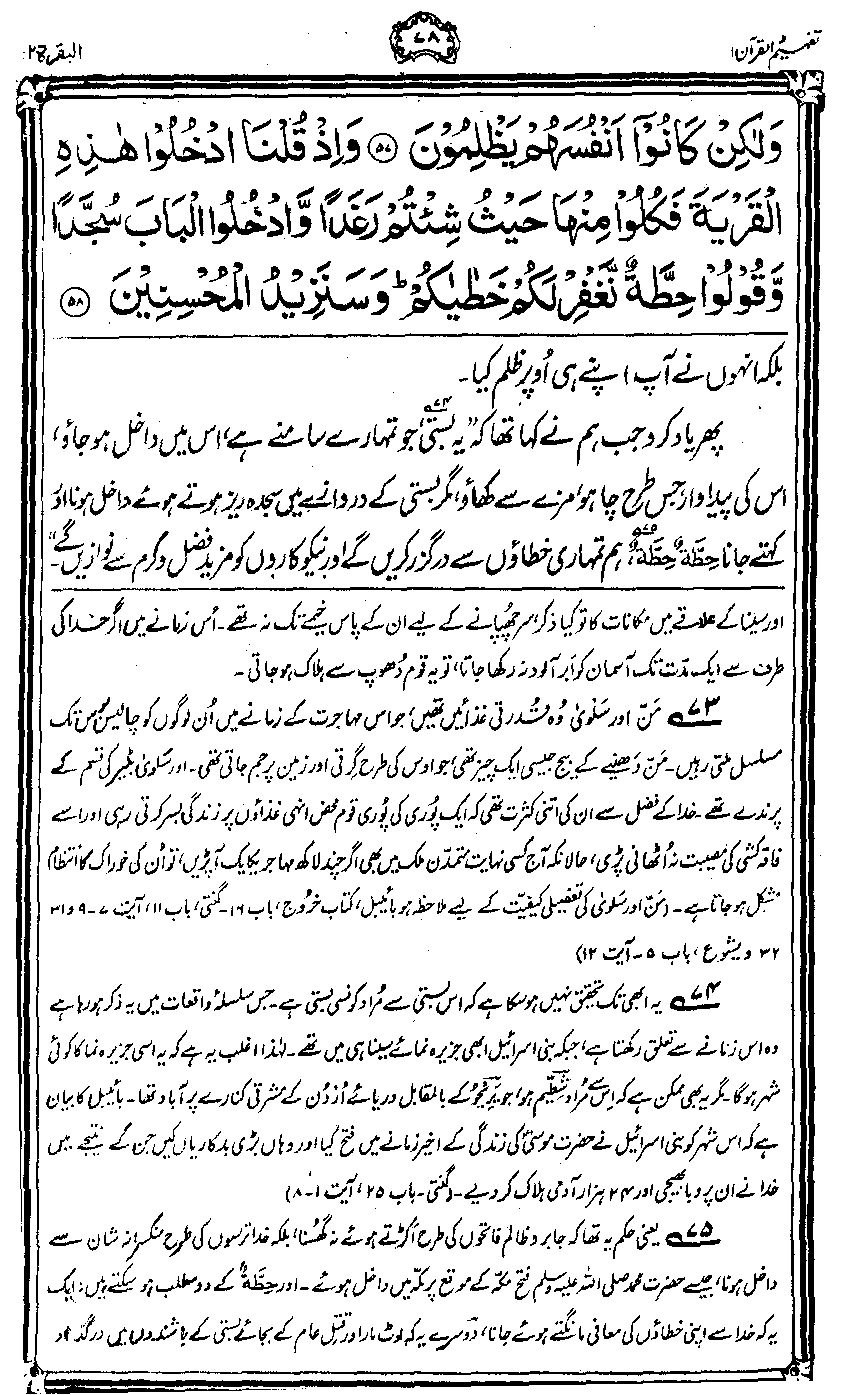 تفہیم القرآن ۱
۷۸
البقرۃ ۲
وَلٰكِنْ كَانُوْٓا اَنْفُسَهُمْ يَظْلِمُوْنَ ﴿۵۷﴾ وَاِذْ قُلْنَا ادْخُلُوْا هٰذِهِ
الْقَرْيَةَ فَكُلُوْا مِنْهَا حَيْثُ شِئْتُمْ رَغَدًا وَّادْخُلُوا الْبَابَ سُجَّدًا
وَّقُوْلُوْا حِطَّةٌ نَّغْفِرْ لَكُمْ خَطٰيٰكُمْ ؕ وَسَنَزِيْدُ الْمُحْسِنِيْنَ ﴿۵۸﴾
بلکہ انہوں نے آپ اپنے ہی اُوپر ظلم کیا۔
پھر یاد کرو جب ہم نے کہا تھا کہ ”یہ بستی۷۴ جو تمہارے سامنے ہے، اس میں داخل ہو جاؤ،
اس کی پیداوار جس طرح چاہو، مزے سے کھاؤ، مگر بستی کے دروازے میں سجدہ ریز ہوتے ہوئے داخل ہونا اور
کہتے جانا حِطَّۃٌ حِطَّۃٌ۷۵، ہم تمہاری خطاؤں سے درگزر کریں گے اور نیکو کاروں کو مزید فضل و کرم سے نوازیں گے“۔
اور سینا کے علاقے میں مکانات کا تو کیا ذکر، سر چھپانے کے لیے ان کے پاس خیمے تک نہ تھے۔ اُس زمانے میں اگر خدا کی
طرف سے ایک مدّت تک آسمان کو ابر آلود نہ رکھا جاتا، تو یہ قوم دُھوپ سے ہلاک ہو جاتی۔
۷۳ مَنّ اور سَلْویٰ وُہ قدرتی غذائیں تھیں، جو اس مہاجرت کے زمانے میں اُن لوگوں کو چالیس برس تک
مسلسل ملتی رہیں۔ مَنّ دَھنیے کے بیج جیسی ایک چیز تھی، جو اوس کی طرح گرتی اور زمین پر جم جاتی تھی۔ اور سَلویٰ بٹیر کی قسم کے
پرندے تھے۔ خدا کے فضل سے ان کی اتنی کثرت تھی کہ ایک پُوری کی پُوری قوم محض انہی غذاؤں پر زندگی بسر کرتی رہی اور اسے
فاقہ کشی کی مصیبت نہ اُٹھانی پڑی، حالانکہ آج کسی نہایت متمدّن ملک میں بھی اگر چند لاکھ مہاجر یکایک آ پڑیں، تو اُن کی خوراک کا انتظام
مشکل ہو جاتا ہے۔ (مَنّ اور سَلویٰ کی تفصیلی کیفیّت کے لیے ملاحظہ ہو بائیبل، کتاب خروج، باب ۱۶۔ گنتی، باب ۱۱، آیت ۷-۹ و ۳۱
۳۲ و یشوع، باب ۵۔ آیت ۱۲)
۷۴ یہ ابھی تک تحقیق نہیں ہو سکا ہے کہ اس بستی سے مُراد کونسی بستی ہے۔ جس سلسلۂ واقعات میں یہ ذکر ہو رہا ہے
وہ اس زمانے سے تعلق رکھتا ہے، جبکہ بنی اسرائیل ابھی جزیرہ نمائے سینا ہی میں تھے۔ لہٰذا اغلب یہ ہے کہ یہ اسی جزیرہ نما کا کوئی
شہر ہوگا۔ مگر یہ بھی ممکن ہے کہ اِس سے مُراد شِطّیم ہو، جو یَرِیحُو کے بالمقابل دریائے اُرْدُن کے مشرقی کنارے پر آباد تھا۔ بائیبل کا بیان
ہے کہ اس شہر کو بنی اسرائیل نے حضرت موسیٰؑ کی زندگی کے اخیر زمانے میں فتح کیا اور وہاں بڑی بدکاریاں کیں جن کے نتیجے میں
خدا نے ان پر وبا بھیجی اور ۲۴ ہزار آدمی ہلاک کر دیے۔ (گنتی۔ باب ۲۵، آیت ۱-۸)
۷۵ یعنی حکم یہ تھا کہ جابر و ظالم فاتحوں کی طرح اکڑتے ہوئے نہ گھُسنا، بلکہ خدا ترسوں کی طرح منکسرانہ شان سے
داخل ہونا، جیسے حضرت محمد صلی اللہ علیہ وسلم فتح مکّہ کے موقع پر مکّہ میں داخل ہوئے۔ اور حِطَّۃٌ کے دو مطلب ہو سکتے ہیں: ایک
یہ کہ خدا سے اپنی خطاؤں کی معافی مانگتے ہوئے جانا، دُوسرے یہ کہ لوٹ مار اور قتلِ عام کے بجائے بستی کے باشندوں میں درگذر اور